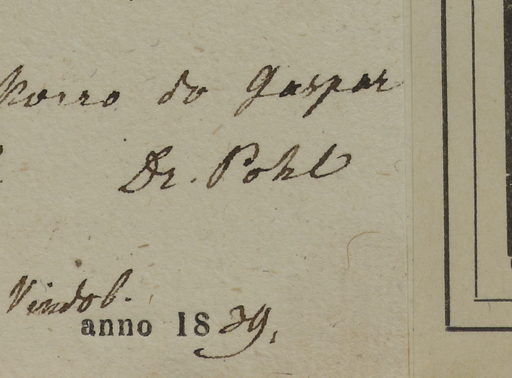 Morro do Gaspar
Dr. Pohl
Vindob.
anno 1839.